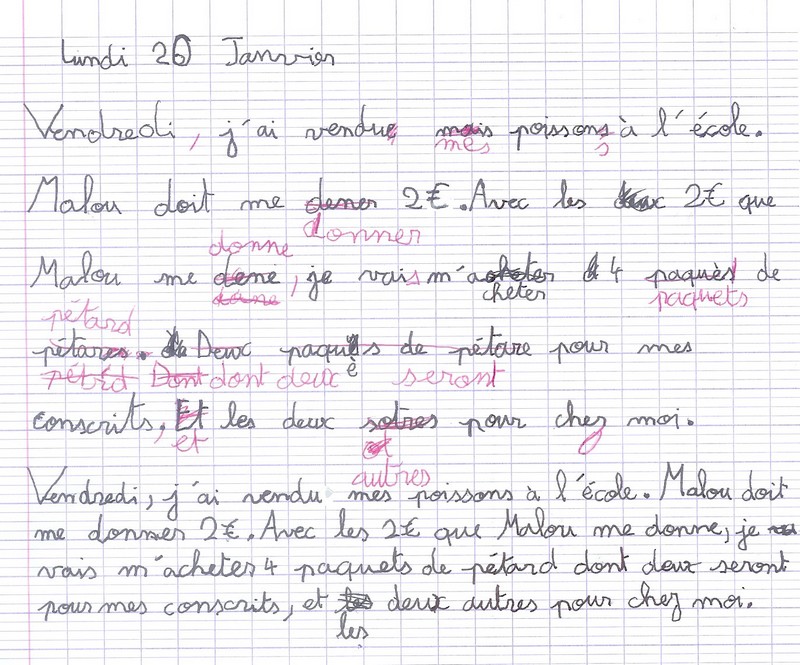 Lundi 26 Janvier
Vendredi, j'ai vendu mais poissons à l'école.
mes s
Malou doit me 2€. Avec les 2€ que
donne donner
Malou me dene, je vais m'acheter 4 paquès de
donne cheter paquets
pétard
pétares. Deux paquès de pétare pour mes
pétrd Dont dont deux è seront
conscrits, Et les deux sotres pour chez moi.
et
autres
Vendredi, j'ai vendu mes poissons à l'école. Malou doit
me donner 2€. Avec les 2€ que Malou me donne, je
vais m'acheter 4 paquets de pétard dont deux seront
pour mes conscrits, et deux autres pour chez moi.
les